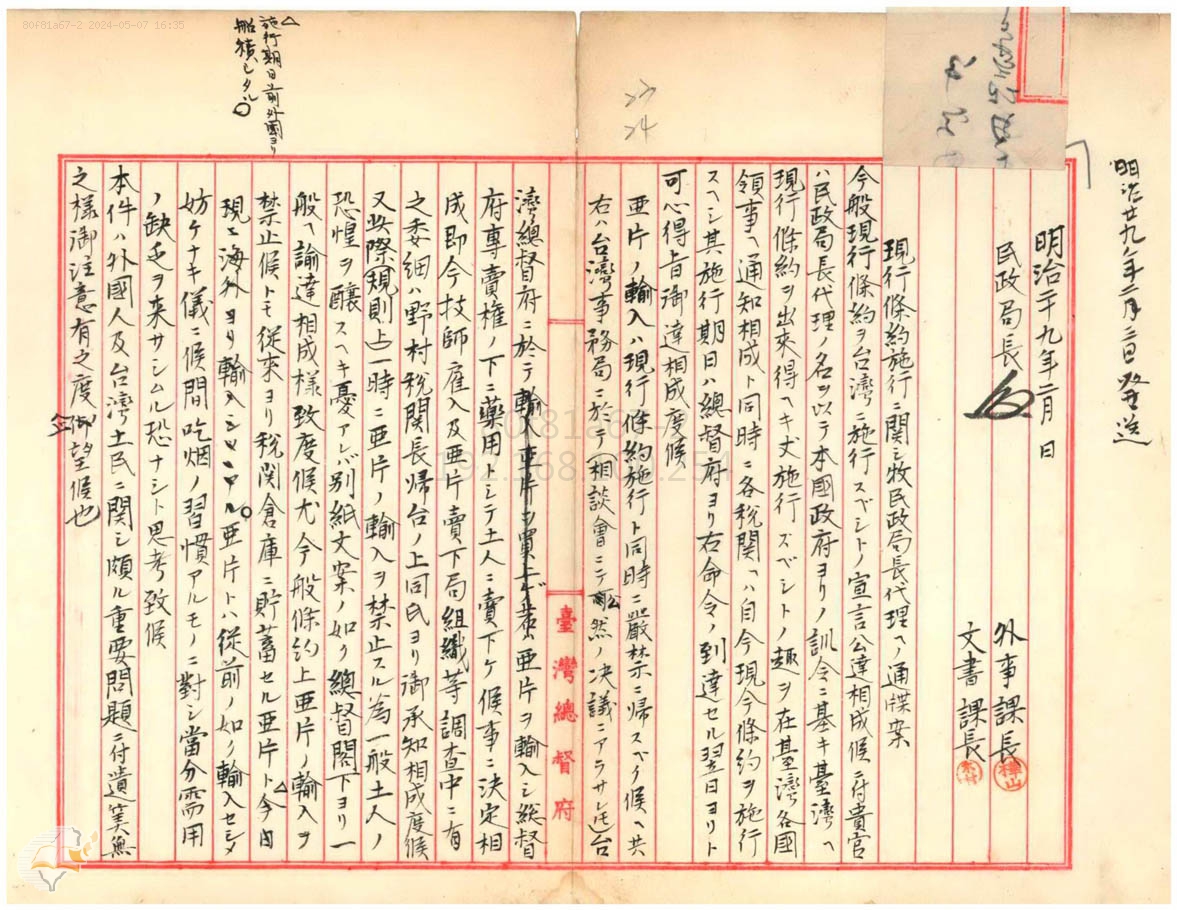 80f81a67-2 2024-05-07 16:35
明治廿九年二月三日発送
明治二十九年二月 日
民政局長
外事課長
樺山
文書課長
木村
現行條約施行ニ関シ牧民政局長代理ヘノ通牒案
今般現行條約ヲ台灣ニ施行スベシトノ宣言公達相成候ニ付貴官
ハ民政局長代理ノ名ヲ以テ本國政府ヨリノ訓令ニ基キ臺灣ヘ
現行條約ヲ出来得ヘキ丈施行スベシトノ趣ヲ在臺灣各國
領事ヘ通知相成ト同時ニ各税関ヘハ自今現今條約ヲ施行
スヘシ其施行期日ハ總督府ヨリ右命令ノ到達セル翌日ヨリト
可心得旨御達相成度候
亜片ノ輸入ハ現行條約施行ト同時ニ嚴禁ニ帰スベク候ヘ共
右ハ台灣事務局ニ於テ相談會ニテ公然ノ决議ニアラサレ共台
灣總督府ニ於テ輸入亜片ヲ買上ゲ若クハ亜片ヲ輸入シ総督
府専賣権ノ下ニ藥用トシテ土人ニ賣下ケ候事ニ决定相
成即今技師雇入及亜片賣下局組織等調査中ニ有
之委細ハ野村税関長帰台ノ上同氏ヨリ御承知相成度候
又此際規則上一時ニ亜片ノ輸入ヲ禁止スル為一般土人ノ
恐惶ヲ釀スヘキ憂アレバ別紙文案ノ如ク總督閣下ヨリ一
般ヘ諭達相成様致度候尤今般條約上亜片ノ輸入ヲ
禁止候トモ従来ヨリ税関倉庫ニ貯蓄セル亜片ト△今日
現ニ海外ヨリ輸入シツヽアル亜片トハ従前ノ如ク輸入セシメ
妨ケナキ儀ニ候間吃烟ノ習慣アルモノニ對シ當分需用
ノ缺乏ヲ来サシムル恐ナシト思考致候
本件ハ外國人及台灣土民ニ関シ頗ル重要問題ニ付遺筭無
之様御注意有之度御望候也
△施行期日前外國ヨリ
船積シタル
臺灣總督府
23
24
80f81a67-2
192.168.100.254